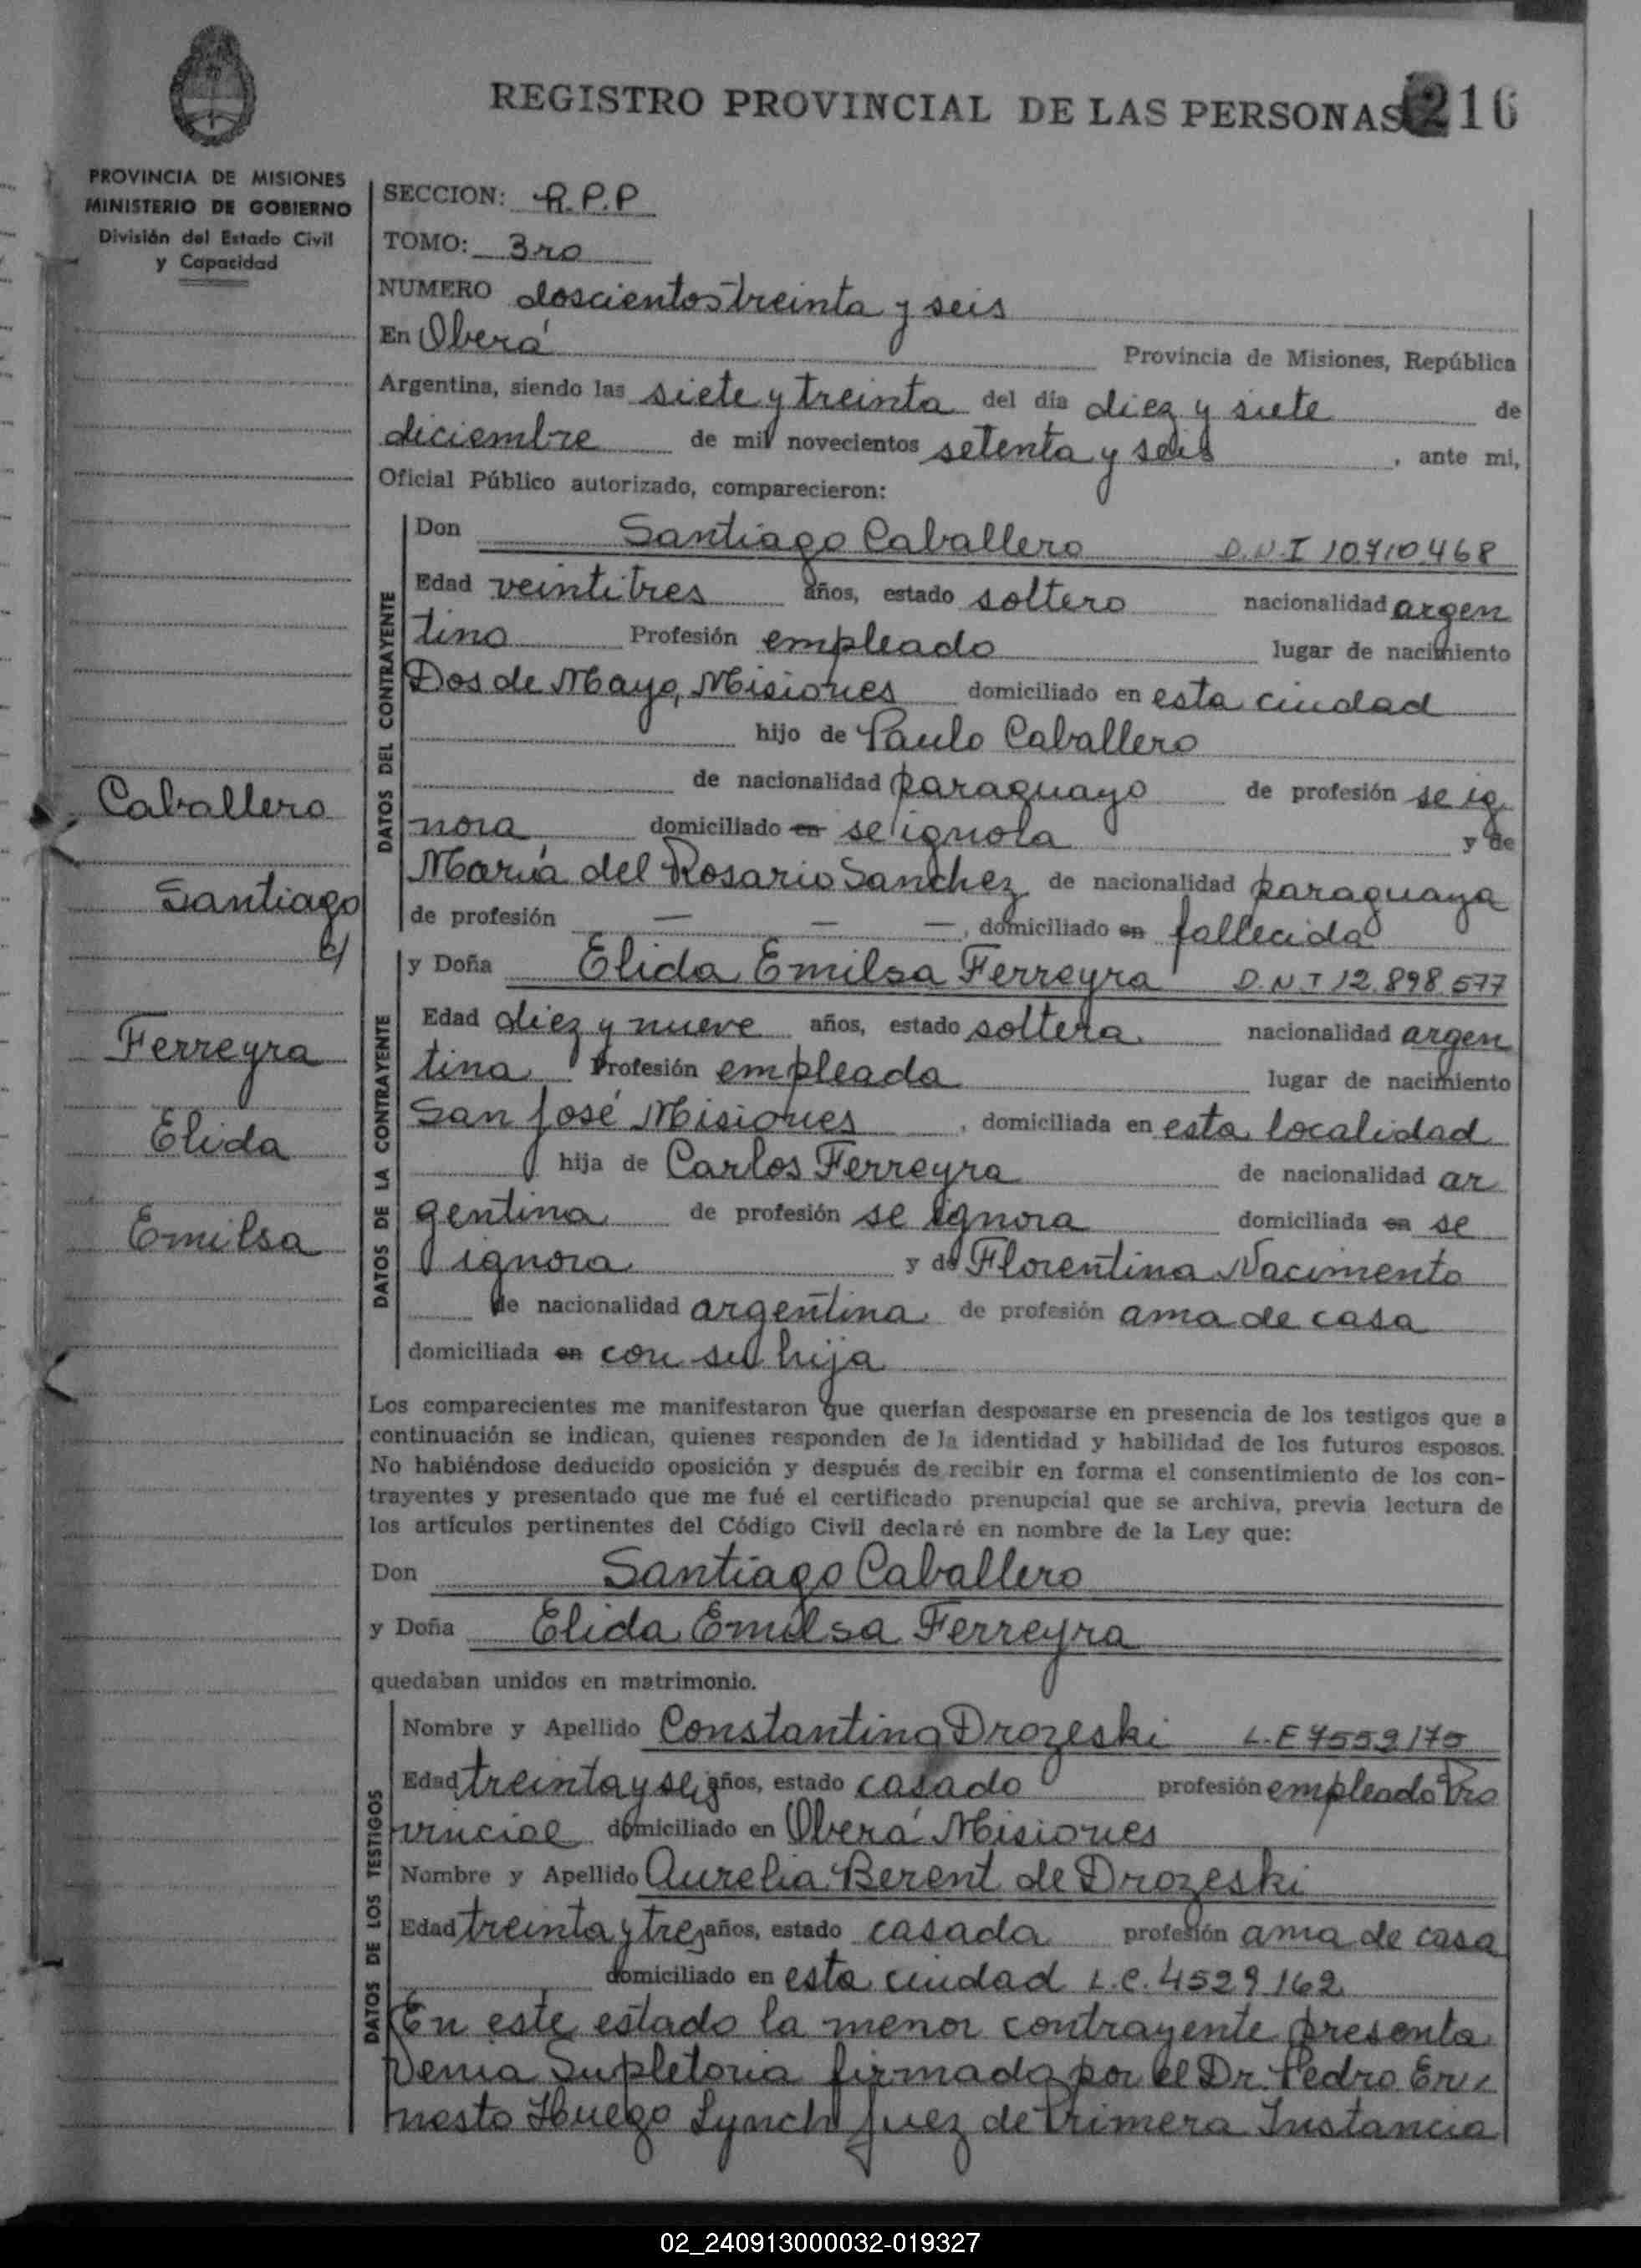 REGISTRO PROVINCIAL DE LAS PERSONAS 216
PROVINCIA DE MISIONES
MINISTERIO DE GOBIERNO
División del Estado Civil
y Capacidad
SECCION: R.P.P
TOMO: 3ro
NUMERO doscientos treinta y seis
En Oberá Provincia de Misiones, República
Argentina, siendo las siete y treinta del día diez y siete de
diciembre de mil novecientos setenta y seis, ante mi,
Oficial Público autorizado, comparecieron:
DATOS DEL CONTRAYENTE
Don Santiago Caballero D.N.I 10.710.468
Edad veintitres años, estado soltero nacionalidad argen
tino Profesión empleado lugar de nacimiento
Dos de Mayo, Misiones domiciliado en esta ciudad
hijo de Paulo Caballero
de nacionalidad paraguayo de profesión se ig
nora domiciliado en se ignora y de
María del Rosario Sanchez de nacionalidad paraguaya
de profesión — — —, domiciliado en fallecida
Caballero
Santiago
c/
Ferreyra
Elida
Emilsa
DATOS DE LA CONTRAYENTE
y Doña Elida Emilsa Ferreyra D.N.I 12.898.577
Edad diez y nueve años, estado soltera nacionalidad argen
tina Profesión empleada lugar de nacimiento
San José Misiones, domiciliada en esta localidad
hija de Carlos Ferreyra de nacionalidad ar
gentina de profesión se ignora domiciliada en se
ignora y de Florentina Nacimento
de nacionalidad argentina de profesión ama de casa
domiciliada en con su hija
Los comparecientes me manifestaron que querían desposarse en presencia de los testigos que a
continuación se indican, quienes responden de la identidad y habilidad de los futuros esposos.
No habiéndose deducido oposición y después de recibir en forma el consentimiento de los con-
trayentes y presentado que me fué el certificado prenupcial que se archiva, previa lectura de
los artículos pertinentes del Código Civil declaré en nombre de la Ley que:
Don Santiago Caballero
y Doña Elida Emilsa Ferreyra
quedaban unidos en matrimonio.
DATOS DE LOS TESTIGOS
Nombre y Apellido Constantino Drozeski L.E 7559175
Edad treinta y seis años, estado casado profesión empleado Pro
vincial domiciliado en Oberá Misiones
Nombre y Apellido Aurelia Berent de Drozeski
Edad treinta y tres años, estado casada profesión ama de casa
domiciliado en esta ciudad L.C. 4529162
En este estado la menor contrayente presenta
Venia Supletoria firmada por el Dr. Pedro Er
nesto Huego Lynch Juez de Primera Instancia
02_240913000032-019327